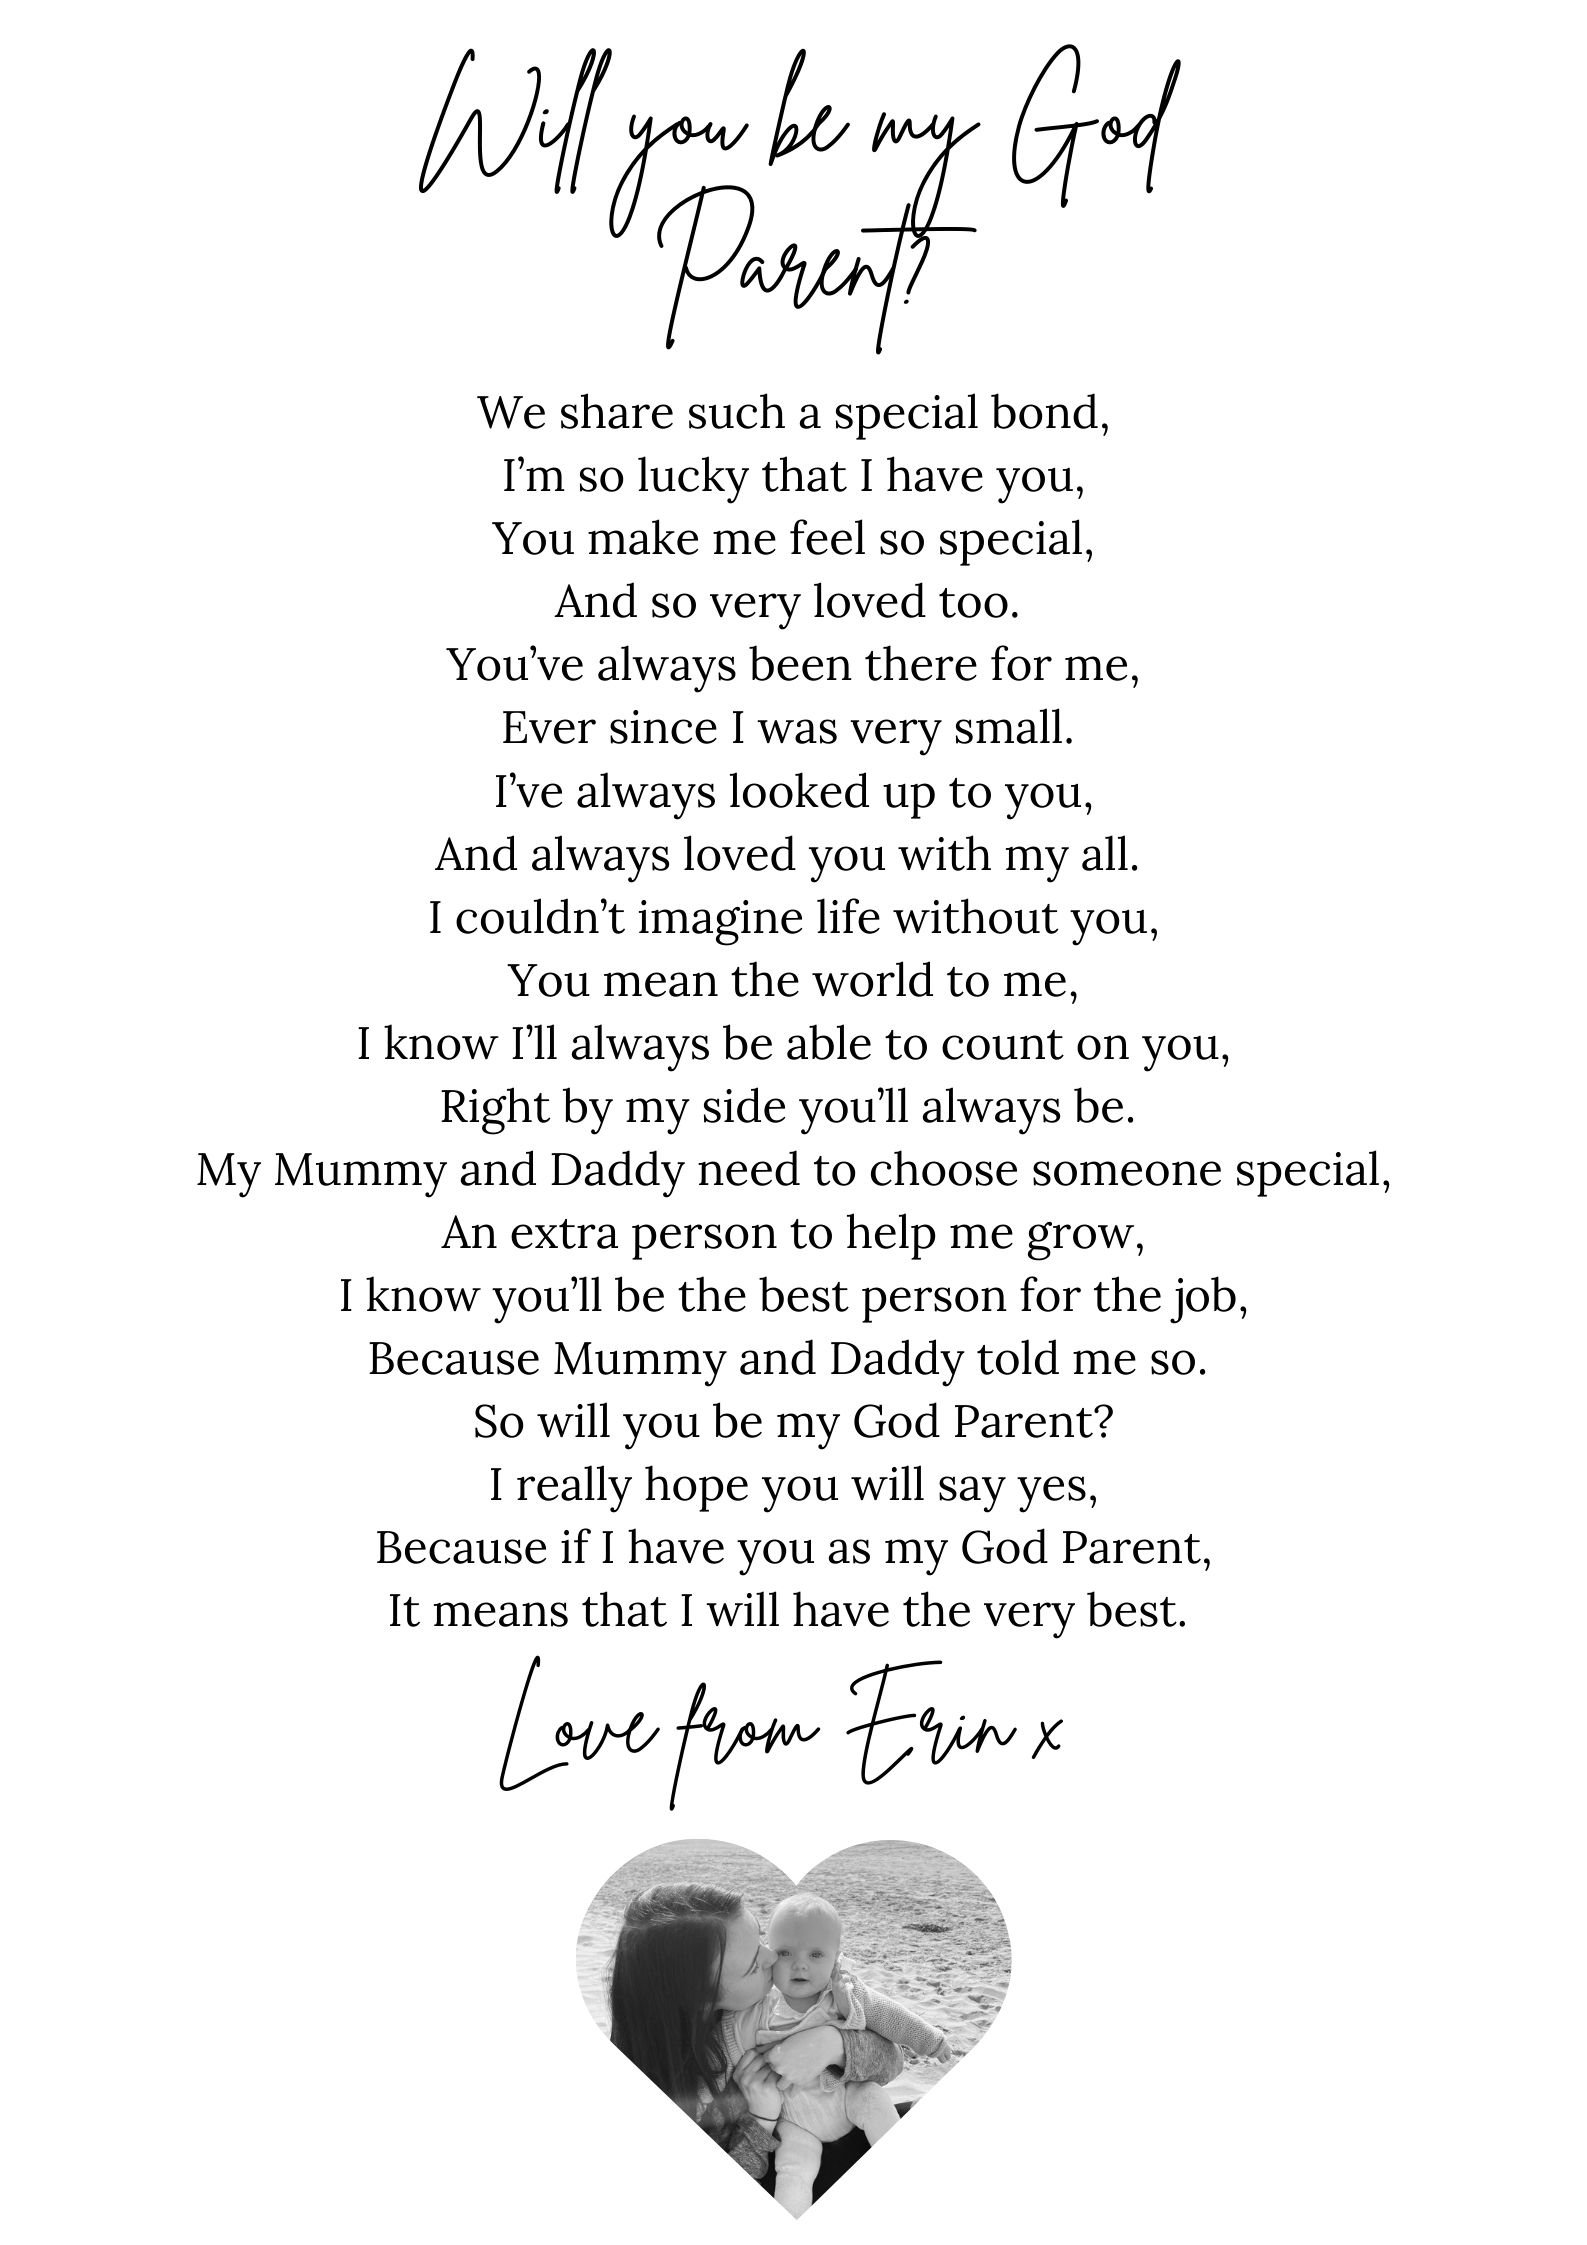 Will you be my God
Parent?
We share such a special bond,
I’m so lucky that I have you,
You make me feel so special,
And so very loved too.
You’ve always been there for me,
Ever since I was very small.
I’ve always looked up to you,
And always loved you with my all.
I couldn’t imagine life without you,
You mean the world to me,
I know I’ll always be able to count on you,
Right by my side you’ll always be.
My Mummy and Daddy need to choose someone special,
An extra person to help me grow,
I know you’ll be the best person for the job,
Because Mummy and Daddy told me so.
So will you be my God Parent?
I really hope you will say yes,
Because if I have you as my God Parent,
It means that I will have the very best.
Love from Erin x